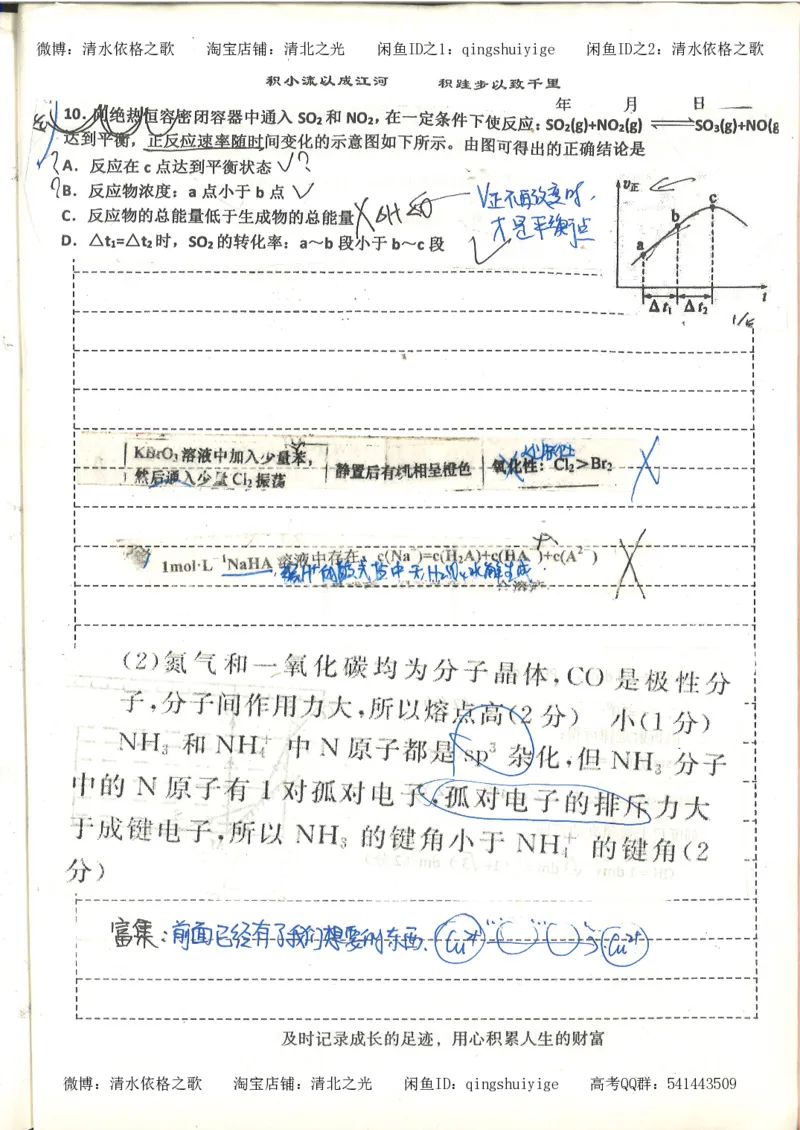 微博：清水依格之歌 淘宝店铺：清北之光 闲鱼ID之1：qingshuiyige 闲鱼ID之2：清水依格之歌
积小流以成江河 积跬步以致千里
年 月 日
10．向绝热恒容密闭容器中通入 SO₂ 和 NO₂，在一定条件下使反应：SO₂(g)+NO₂(g) ⇌ SO₃(g)+NO(g
达到平衡，正反应速率随时间变化的示意图如下所示。由图可得出的正确结论是
A．反应在 c 点达到平衡状态 ✓?
B．反应物浓度：a 点小于 b 点 ✓
C．反应物的总能量低于生成物的总能量 ΔH<0
D．△t₁=△t₂时，SO₂的转化率：a～b 段小于 b～c 段
V正不再改变时，
才是平衡点
v正
a b c
Δt₁ Δt₂ t
KBrO₃ 溶液中加入少量苯，
然后通入少量 Cl₂ 振荡
静置后有机相呈橙色
氧化性：Cl₂＞Br₂
1mol·L⁻¹NaHA 溶液中存在，c(Na⁺)=c(H₂A)+c(HA⁻)+c(A²⁻)
(2)氮气和一氧化碳均为分子晶体，CO 是极性分
子，分子间作用力大，所以熔点高(2 分) 小(1 分)
NH₃ 和 NH₄⁺ 中 N 原子都是 sp³ 杂化，但 NH₃ 分子
中的 N 原子有 1 对孤对电子，孤对电子的排斥力大
于成键电子，所以 NH₃ 的键角小于 NH₄⁺ 的键角(2
分)
富集：前面已经有了我们想要的东西、Cu²⁺ Cu²⁺
及时记录成长的足迹，用心积累人生的财富
微博：清水依格之歌 淘宝店铺：清北之光 闲鱼ID：qingshuiyige 高考QQ群：541443509